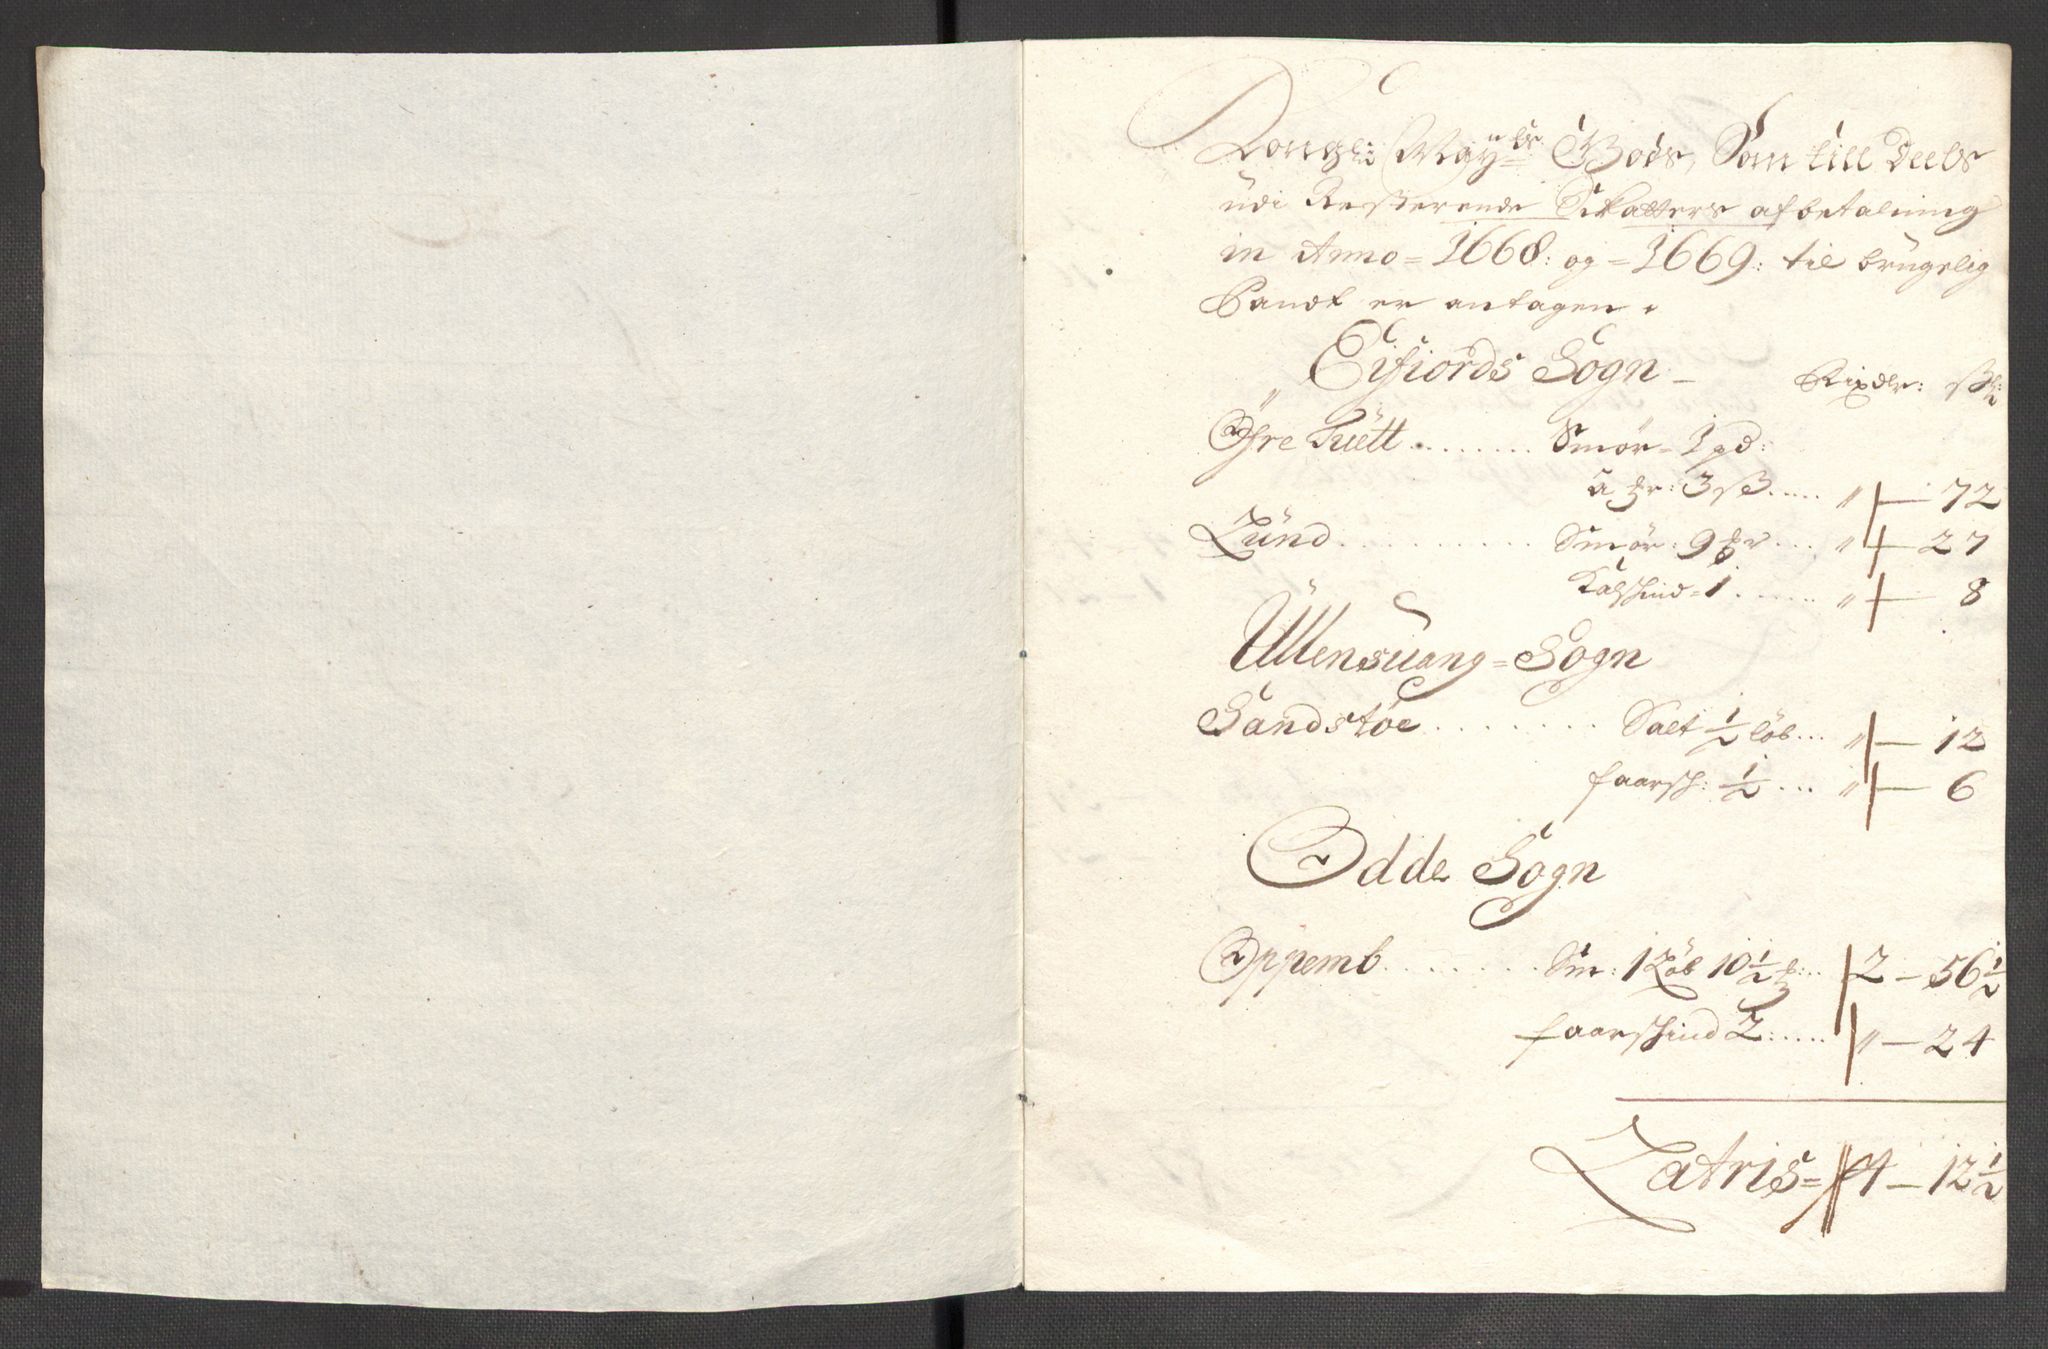 Kongl: May:ts Gods, Som till Deels
udi Resterende Skatters afbetalning
in Anno = 1668: og = 1669: til brugelig
Pandt er antagen.
Eifiords Sogn - Rixdlr: ß:
Øfre Tüëtt ........ Smör = 1 pd:
a pr: 3 ß ..... " — 72
Lünd .......... Smör: 9 ... " — 27
Kalfskind = 1 ...... " — 8
Ullensuang = Sogn
Sandstöe ........ Salt ½ löb ... " — 12
faarsk: ½ ... " — 6
Odde Sogn
Oppemb ........ Sm: 1 Löb 10½ ... 2 — 56½
faarskind 2: ..... " — 24
Latris = 4 — 12½